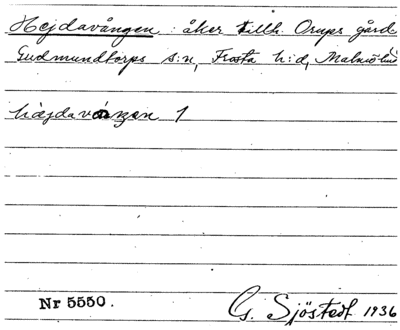 Hejdavången : åker tillh. Orups gård
Gudmundtorps s:n, Frosta h:d, Malmöhus
hæjdavången 1
Nr 5550.
G. Sjöstedt 1936